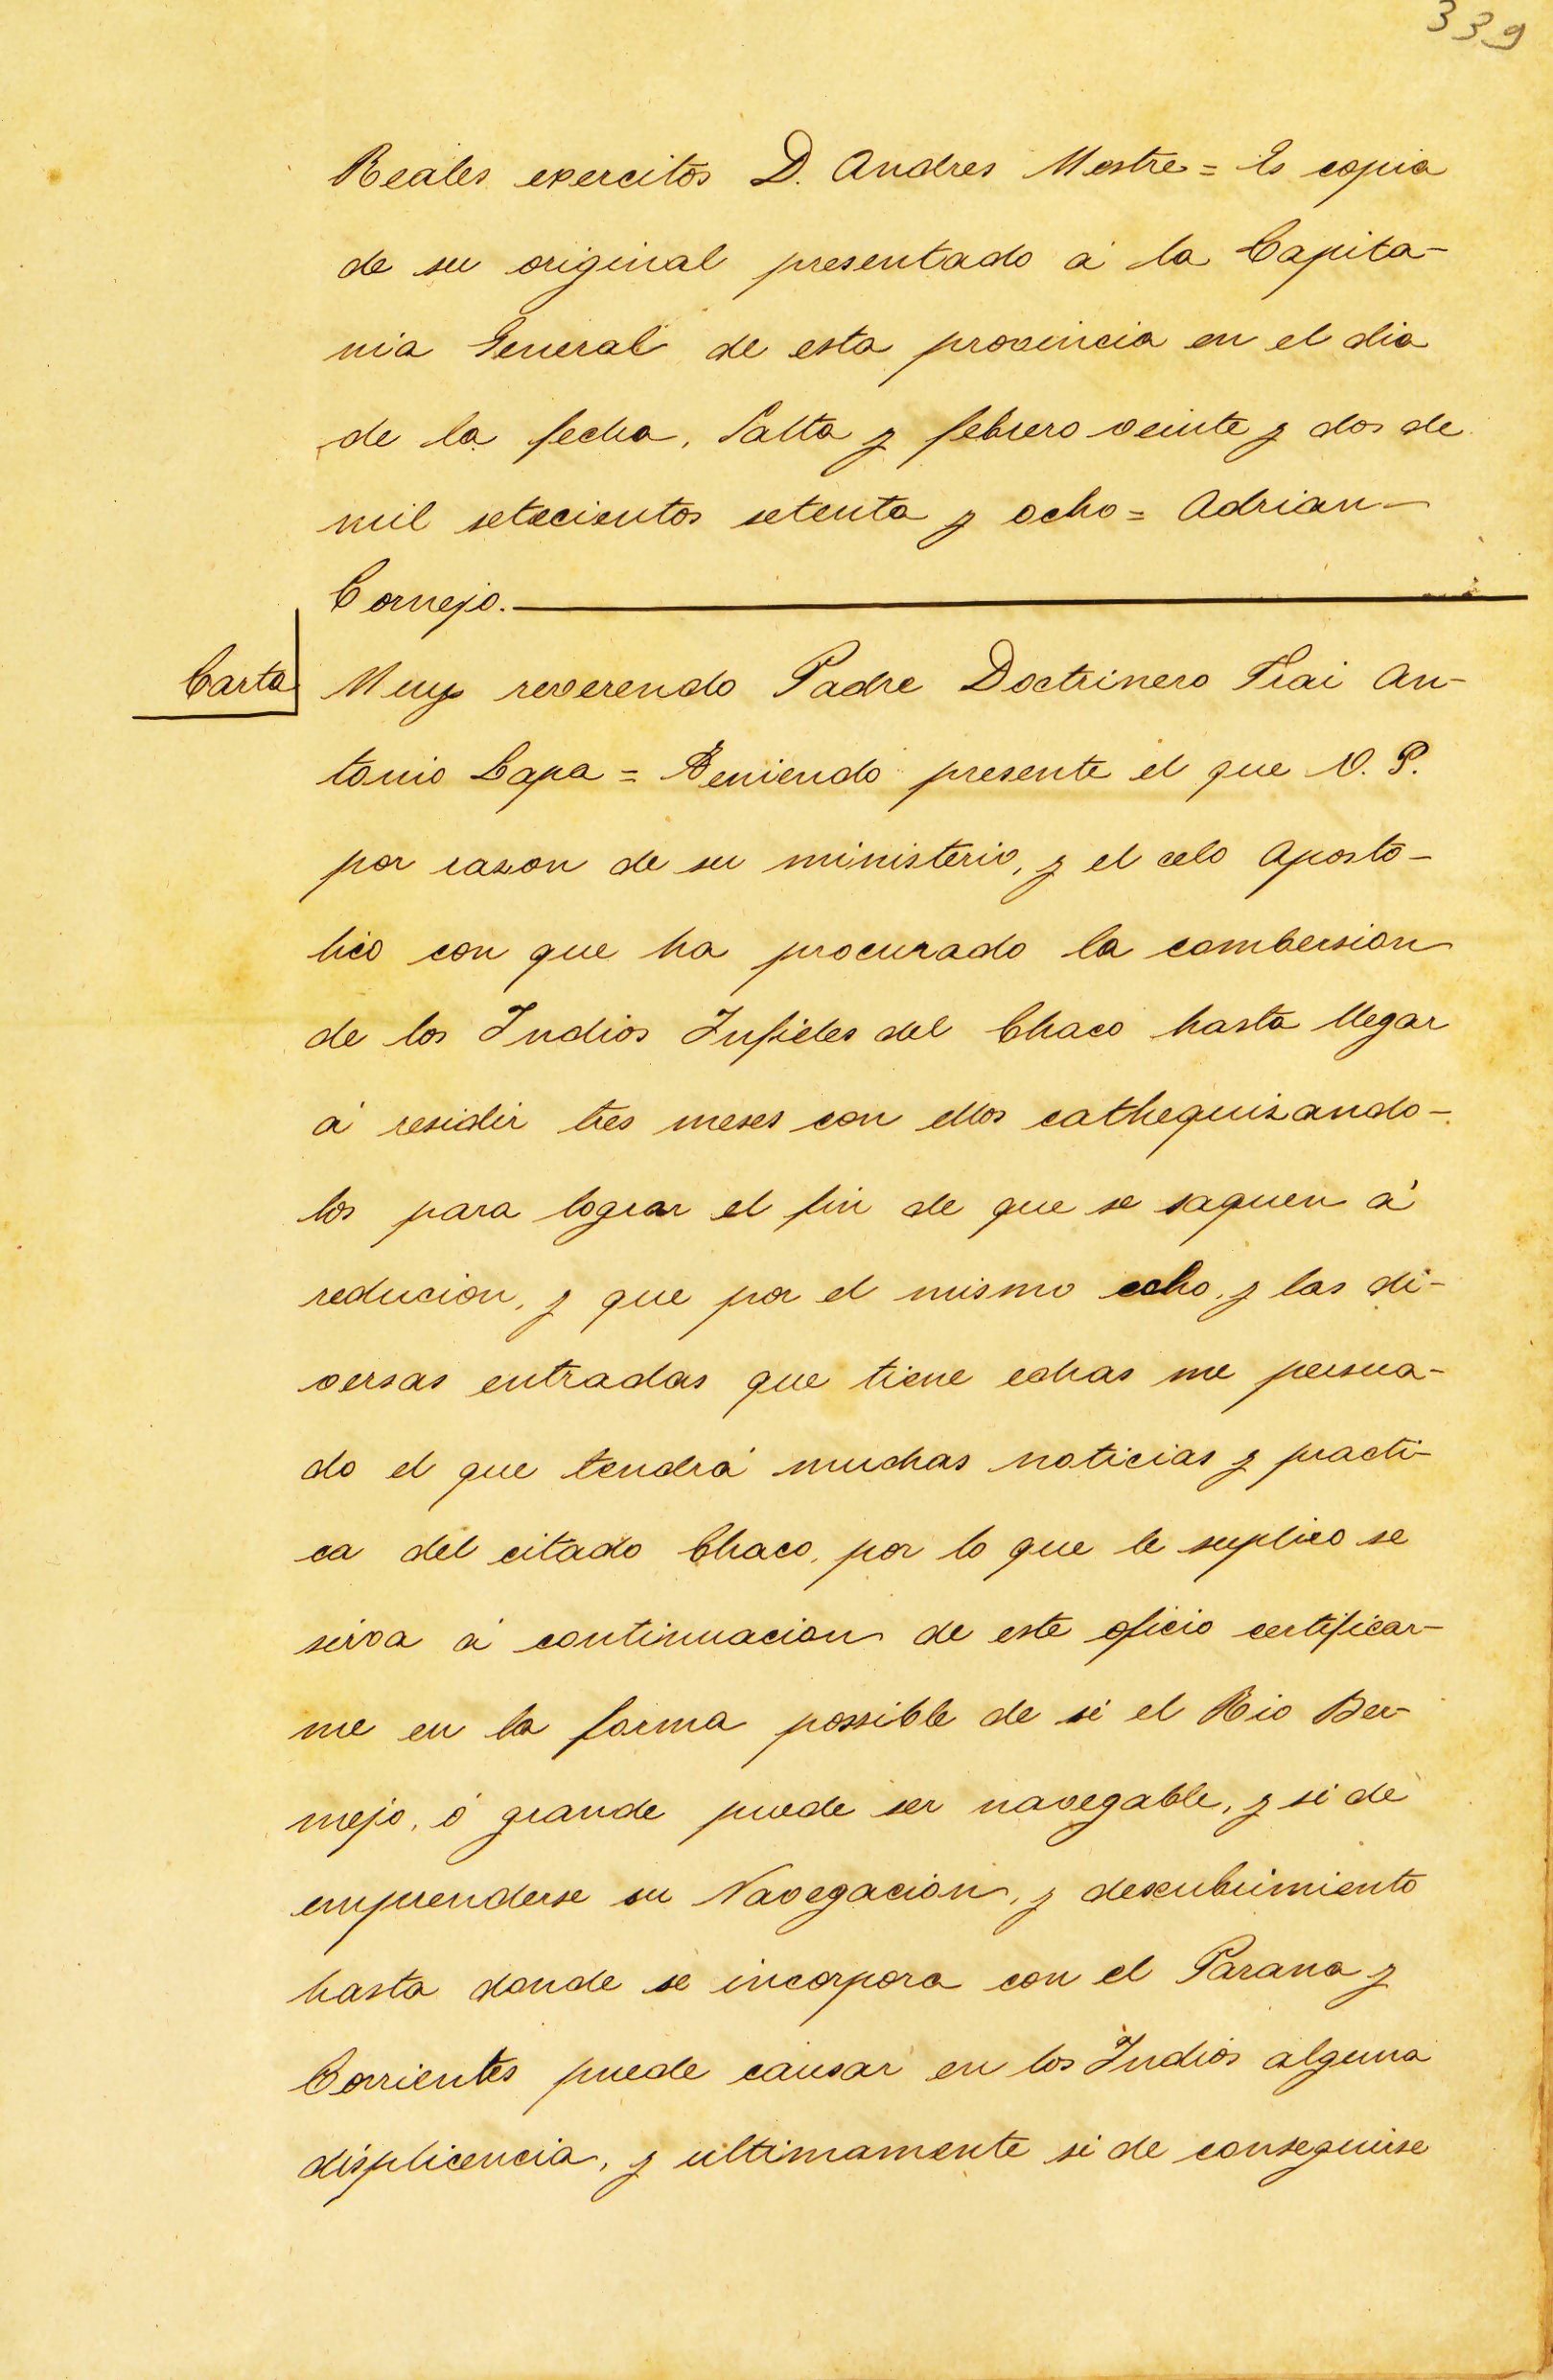 339
Reales exercitos D. Andres Mestre = Es copia
de su original presentado á la Capita-
nia General de esta provincia en el dia
de la fecha, Salta y febrero veinte y dos de
mil setecientos setenta y ocho = Adrian
Cornejo.
Carta
Muy reverendo Padre Doctrinero Frai An-
tonio Lapa = Teniendo presente el que V. P.
por razon de su ministerio, y el celo Aposto-
lico con que ha procurado la combersion
de los Indios Infieles del Chaco hasta llegar
á residir tres meses con ellos cathequizando-
los para lograr el fin de que se saquen á
reducion, y que por el mismo echo, y las di-
versas entradas que tiene echas me persua-
do el que tendrá muchas noticias y practi-
ca del citado Chaco, por lo que le suplico se
sirva á continuacion de este oficio certificar-
me en la forma possible de si el Rio Ber-
mejo, ó grande puede ser navegable, y si de
emprenderse su Navegacion, y descubrimiento
hasta donde se incorpora con el Parana y
Corrientes puede causar en los Indios alguna
displicencia, y ultimamente si de conseguirse